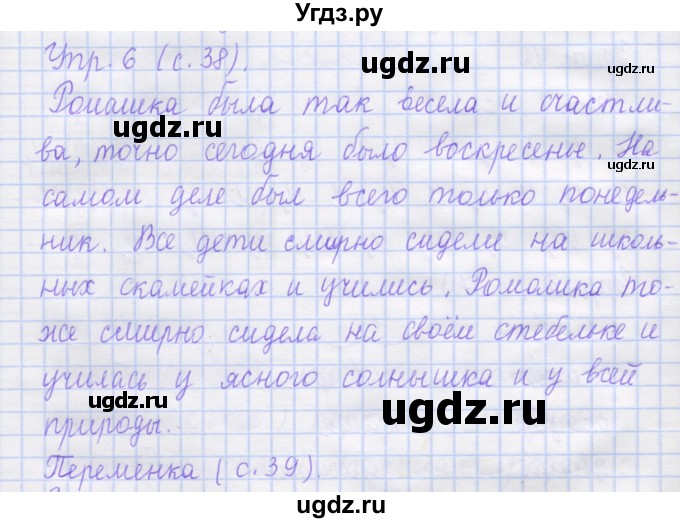 Угдз.ру
Упр. 6 (с. 38).
ugdz.ru
ugdz.ru
Ромашка была так весела и счастли-
ugdz.ru
ва, точно сегодня было воскресенье. На
самом деле был всего только понедель-
ник. Все дети смирно сидели на школь-
ных скамейках и учились. Ромашка то-
же смирно сидела на своём стебельке и
училась у ясного солнышка и у всей
ugdz.ru
ugdz.ru
природы.
Переменка (с. 39).
ugdz.ru